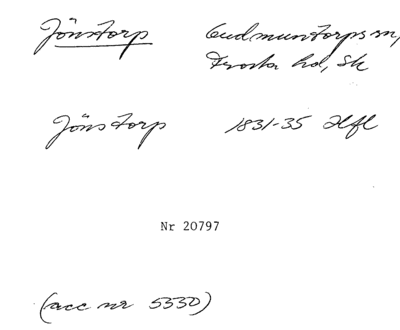 Jönstorp Gudmuntorps sn,
Frosta hd, Sk
Jönstorp 1831-35 Hfl
Nr 20797
(acc nr 5330)